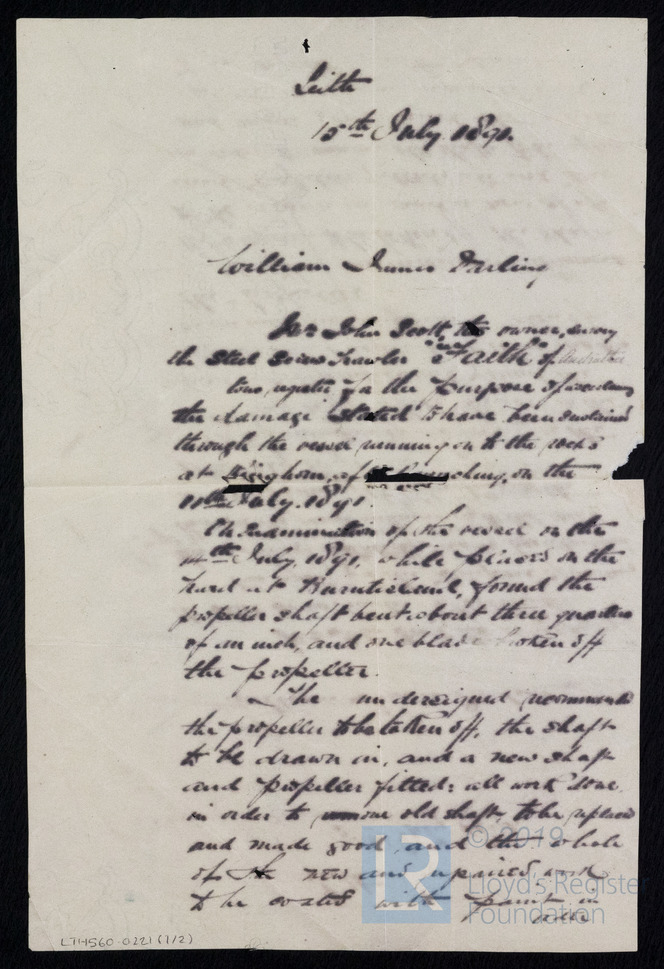 Leith
15th July 1891.
William James Darling
For John Scott, the owner, survey
the Steel Screw Trawler "Faith" of
for the purpose of
the damage stated to have been sustained
through the vessel running on to the rocks
at on the
11th July. 1891
On Examination of the vessel on the
14th July, 1891, while placed on the
hard at Burntisland, found the
propeller shaft bent about three quarters
of an inch, and one blade broken off
the propeller.
The undersigned recommends
the propeller to be taken off, the shaft
to be drawn in, and a new shaft
and propeller fitted: all work done
in order to remove old shaft, to be replaced
and made good, and the whole
of the new and repaired work
to be coated with paint in
LTH560-0221 (1/2)
© 2019
LR
Lloyd's Register
Foundation